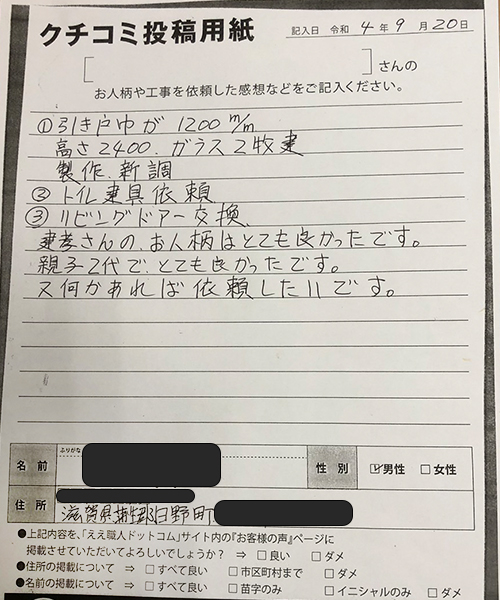 クチコミ投稿用紙
記入日 令和 4 年 9 月 20 日
[ ] さんの
お人柄や工事を依頼した感想などをご記入ください。
①引き戸巾が 1200 m/m
高さ2400.ガラス2牧建
製作.新調
②トイレ建具依頼
③リビングドアー交換
建孝さんの、お人柄はとても良かったです。
親子2代で、とても良かったです。
又何かあれば依頼したいです。
ふりがな
名前
性別 ☑男性 □女性
住所 滋賀県蒲生郡日野町
●上記内容を、「ええ職人ドットコム」サイト内の『お客様の声』ページに
掲載させていただいてよろしいでしょうか? ⇒ □良い □ダメ
●住所の掲載について ⇒ □すべて良い □市区町村まで □ダメ
●名前の掲載について ⇒ □すべて良い □苗字のみ □イニシャルのみ □ダメ